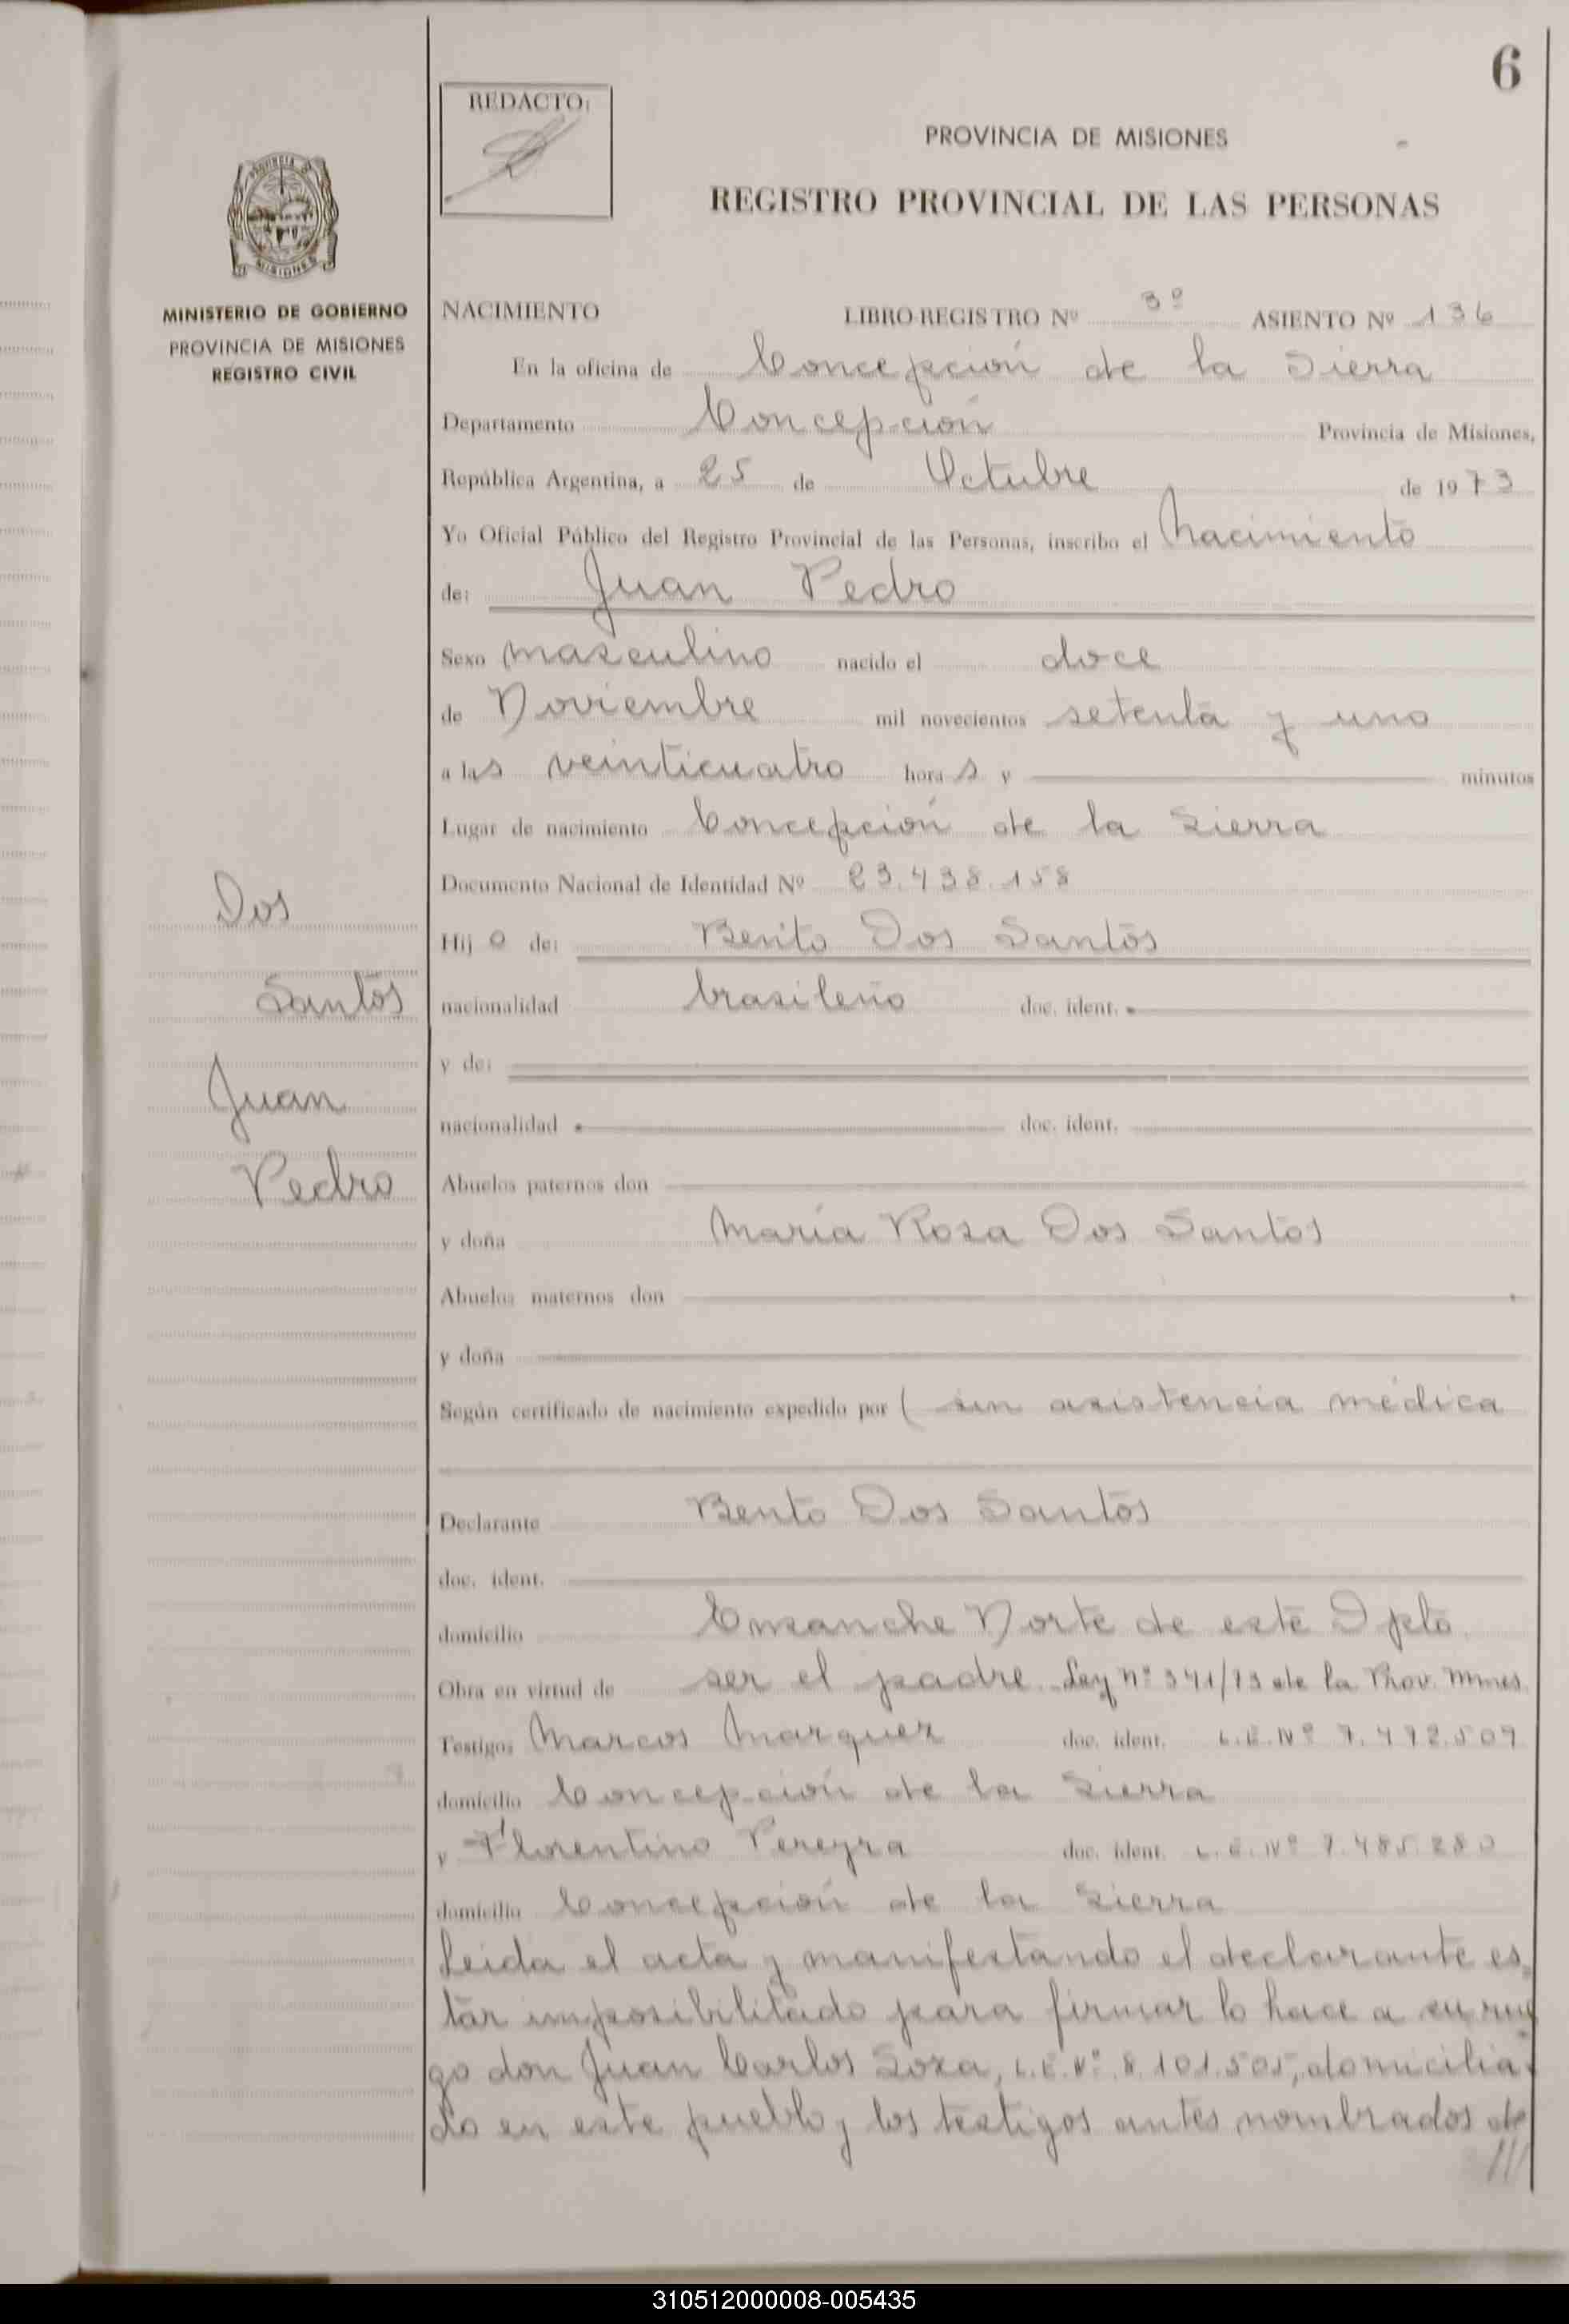 6
REDACTO:
PROVINCIA DE MISIONES
REGISTRO PROVINCIAL DE LAS PERSONAS
PROVINCIA DE
MISIONES
MINISTERIO DE GOBIERNO
PROVINCIA DE MISIONES
REGISTRO CIVIL
Dos
Santos
Juan
Pedro
NACIMIENTO LIBRO-REGISTRO Nº 3º ASIENTO Nº 136
En la oficina de Concepción de la Sierra
Departamento Concepción Provincia de Misiones,
República Argentina, a 25 de Octubre de 1973
Yo Oficial Público del Registro Provincial de las Personas, inscribo el Nacimiento
de: Juan Pedro
Sexo masculino nacido el doce
de Noviembre mil novecientos setenta y uno
a las veinticuatro horas y minutos
Lugar de nacimiento Concepción de la Sierra
Documento Nacional de Identidad Nº 23.438.158
Hijo de: Benito Dos Santos
nacionalidad brasileño doc. ident.
y de:
nacionalidad doc. ident.
Abuelos paternos don
y doña María Rosa Dos Santos
Abuelos maternos don
y doña
Según certificado de nacimiento expedido por ( sin asistencia médica
Declarante Bento Dos Santos
doc. ident.
domicilio Ensanche Norte de este Dpto.
Obra en virtud de ser el padre. Ley nº 341/73 de la Prov. Mnes.
Testigos Marcos Marquez doc. ident. L.E. Nº 7.492.509
domicilio Concepción de la Sierra
y Florentino Pereyra doc. ident. L.E. Nº 7.485.280
domicilio Concepción de la Sierra
Leida el acta y manifestando el declarante es
tar imposibilitado para firmar lo hace a su rue
go don Juan Carlos Soza, L.E. Nº 8.101.505, domicilia
do en este pueblo y los testigos antes nombrados de
///
310512000008-005435